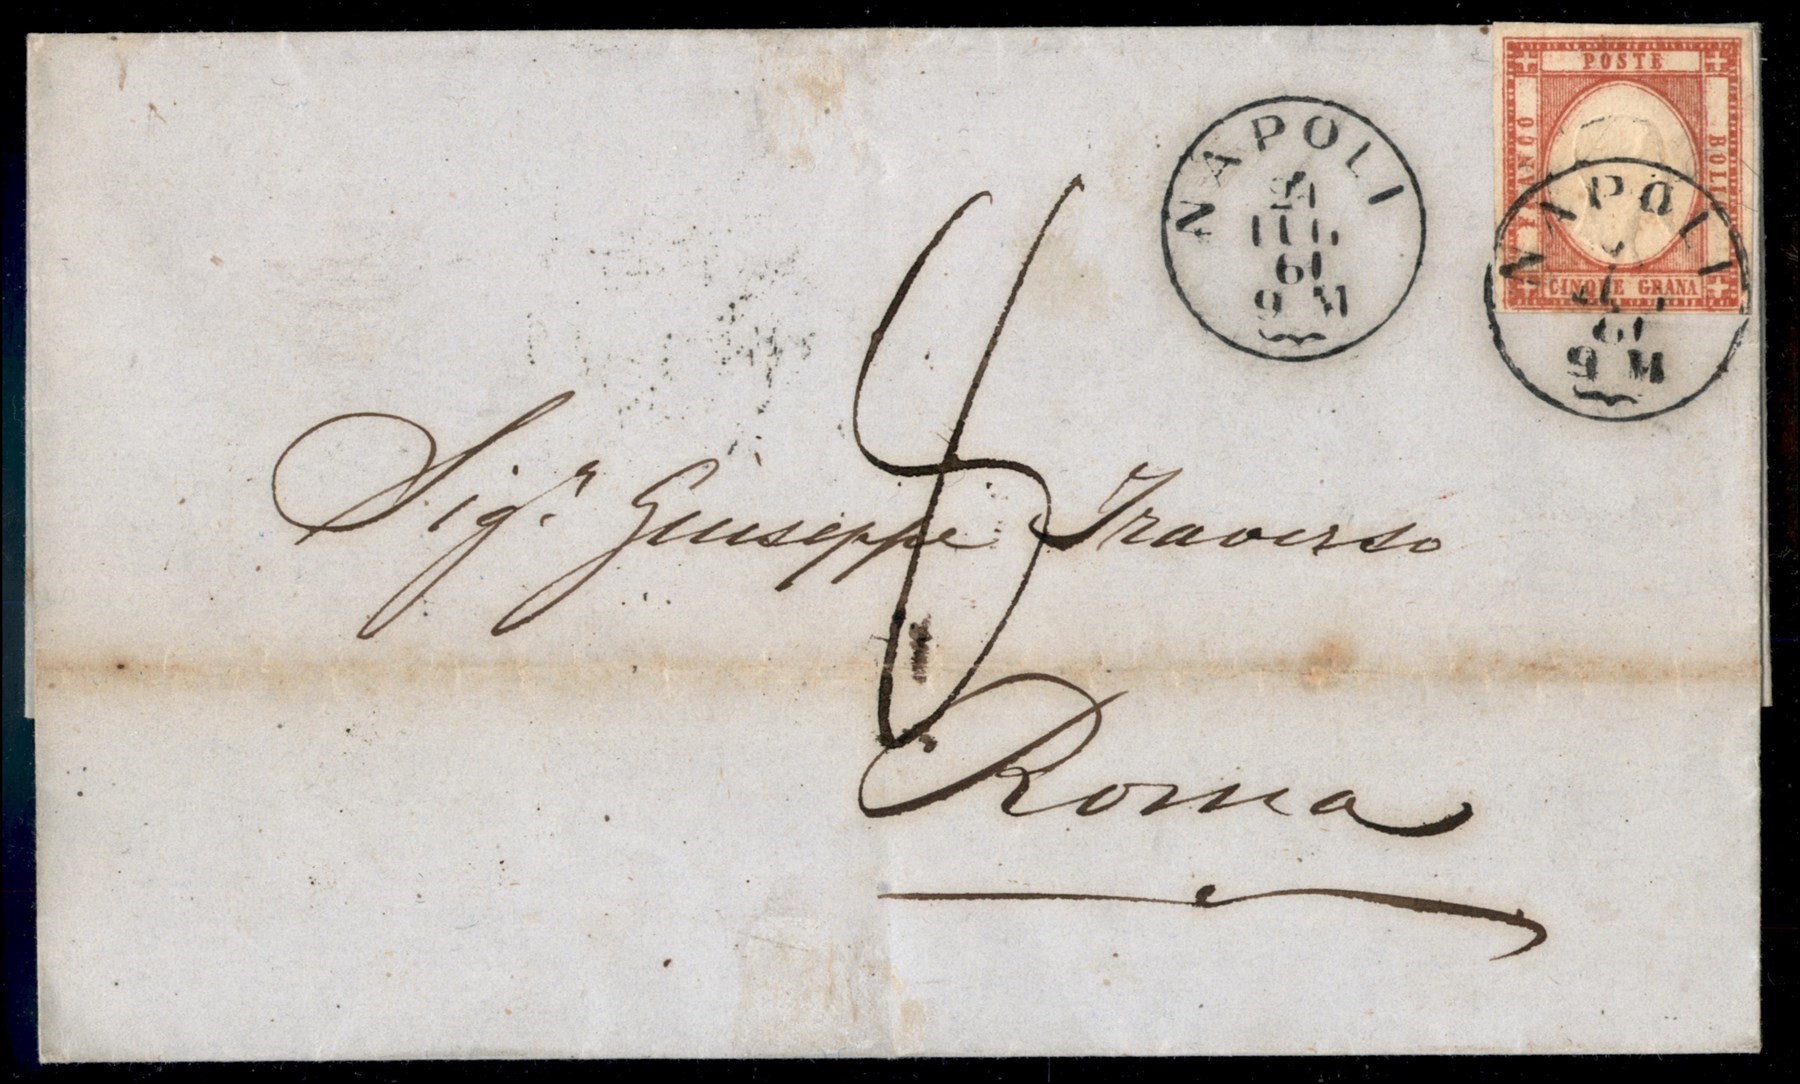 POSTE
FRANCO
BOLLO
CINQUE GRANA
NAPOLI
24
LUG
61
9 M
NAPOLI
61
9 M
Sigr. Giuseppe Traverso
Roma